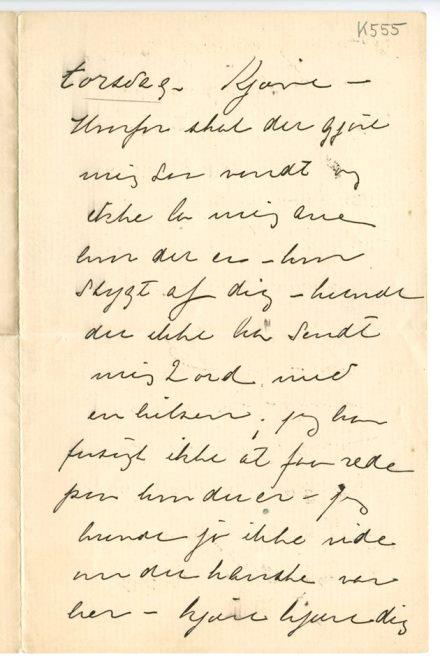 K555
torsdag. Kjære –
Hvorfor skal du gjøre
mig saa vondt og
ikke la mig ane
hvor du er – hvor
stygt af dig – kunde
du ikke ha sendt
mig 2 ord med
en hilsen; jeg har
forsøgt ikke at faa rede
paa hvor du er – jeg
kunde jo ikke vide
om du kanske var
her – kjære kjære dig